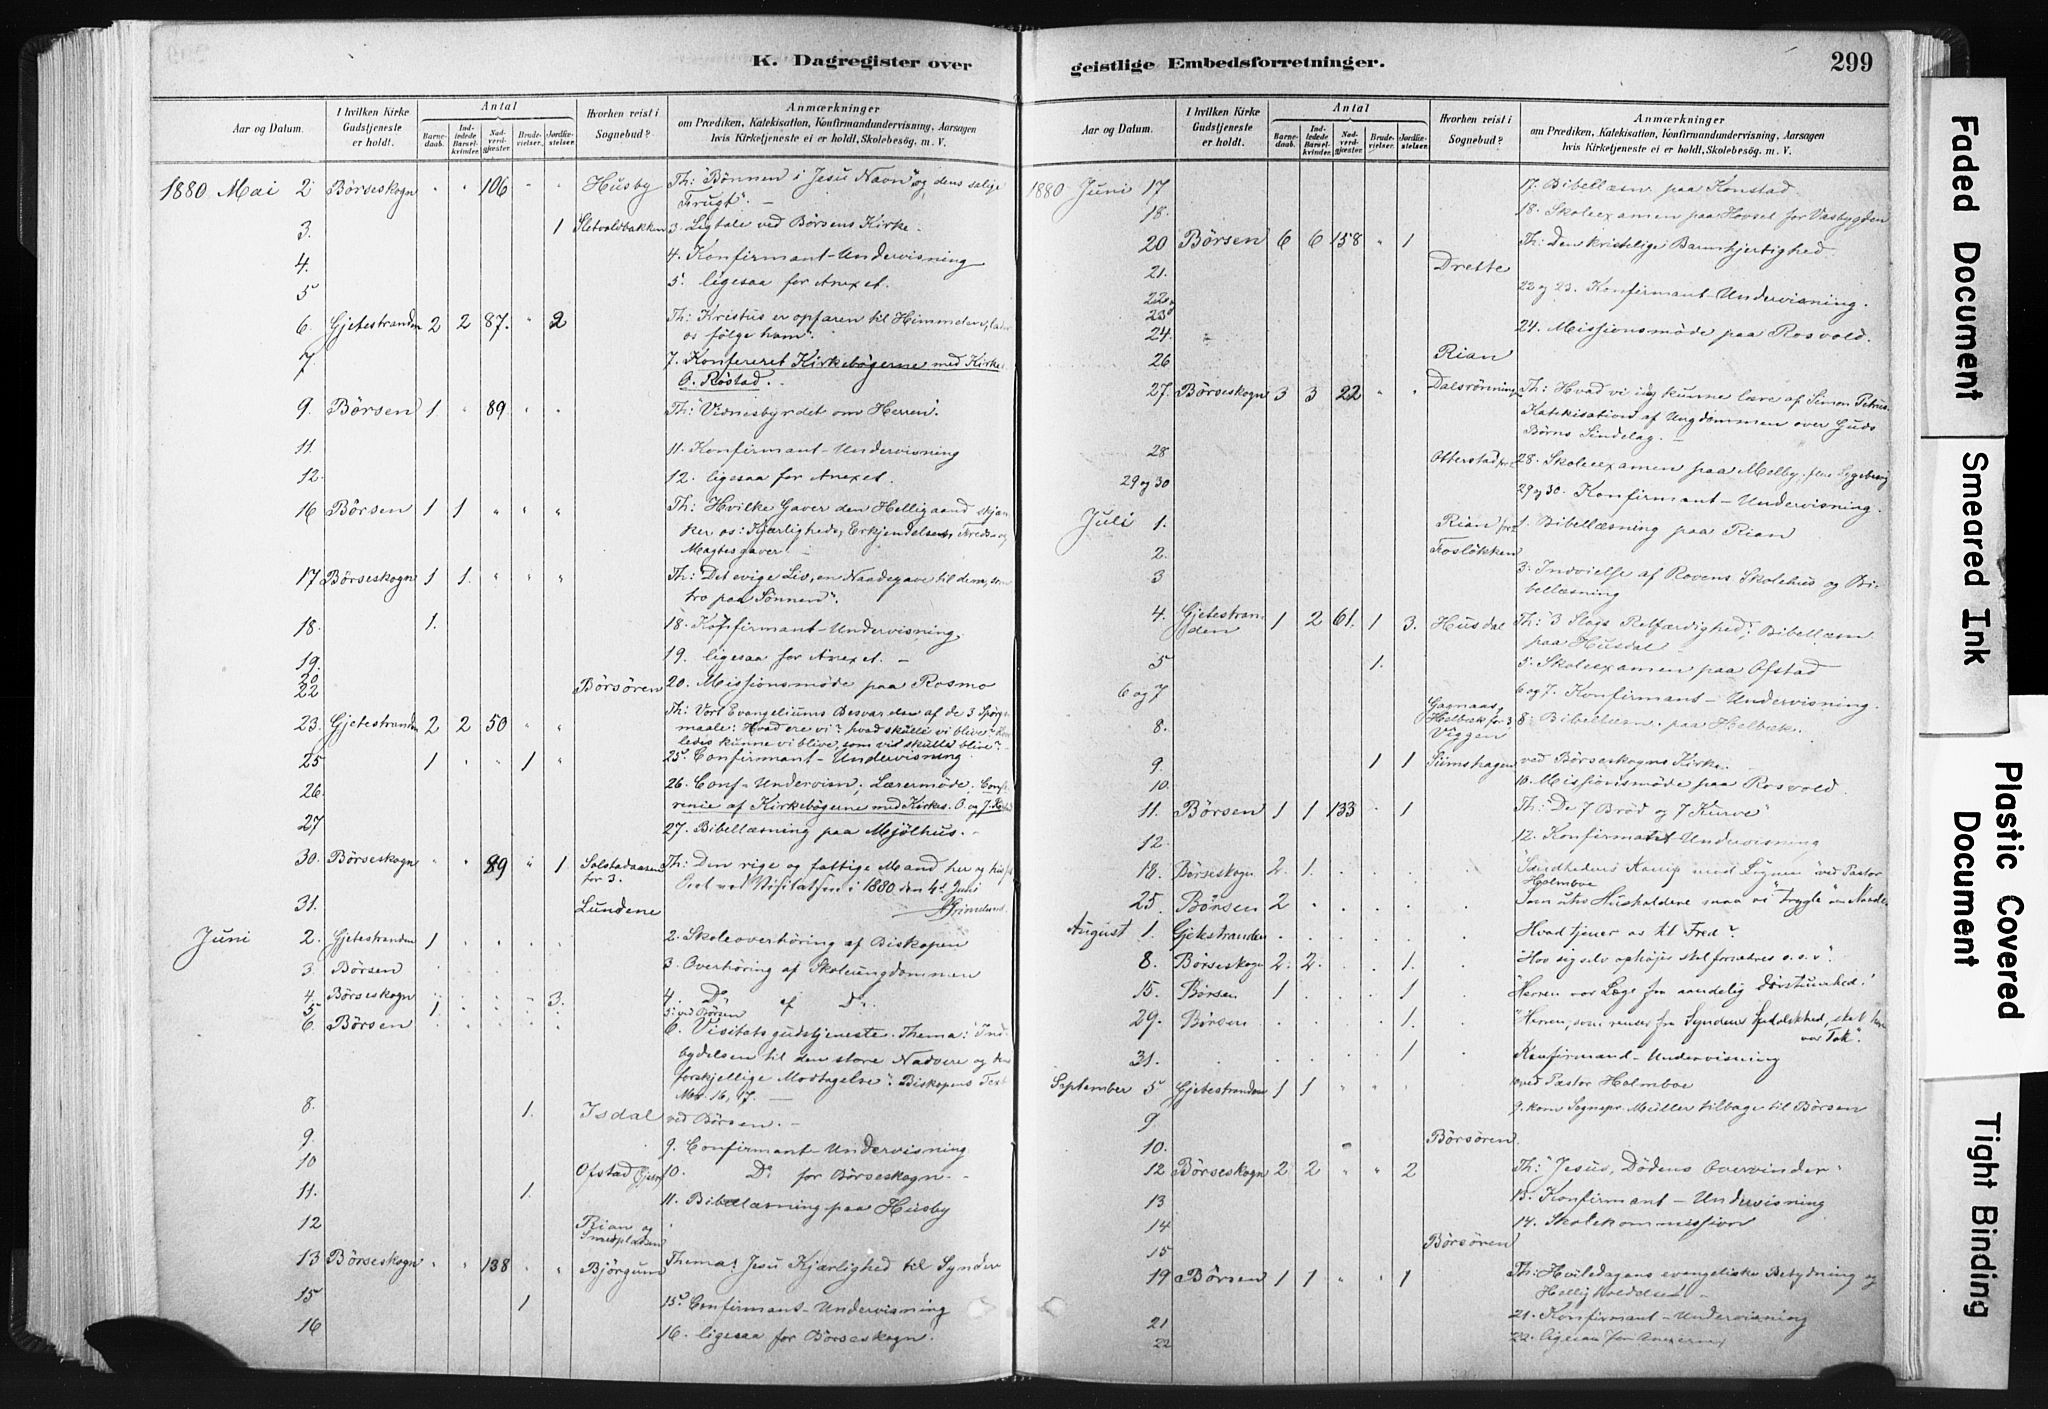 K. Dagregister over
Aar og Datum.
I hvilken Kirke Gudstjeneste er holdt.
Antal
Barnedaab.
Indledede Barselkvinder.
Nadverdgjæster.
Brudevielser.
Jordfæstelser.
Hvorhen reist i Sognebud?
Anmærkninger
om Prædiken, Katekisation, Konfirmandundervisning, Aarsagen
hvis Kirketjeneste ei er holdt, Skolebesøg. m. V.
1880 Mai 2 Börseskogn " " 106 " " Husby Th: "Bønnen i Jesu Navn" og dens salige
Frugt". –
3. 1 Sletvoldbakken 3. Ligtale ved Börsens Kirke.
4. 4. Konfirmant-Undervisning
5 5. ligesaa for Anexet.
6. Gjetestranden 2 2 87. " 2 Th: "Kristus er opfaren til Himmelen, lader
os følge ham".
7. 7. Konfereret Kirkebøgerne med Kirkes.
O. Röstad.
9. Börsen 1 " 89 " " Th: "Vidnesbyrdet om Herren".
11. 11. Konfirmant-Undervisning
12. 12. ligesaa for Anexet.
16 Börsen 1 1 " " " Th: Hvilke Gaver den Helligaand skjæn
ker os: Kjærligheds, Erkjendelsens, Freds og
Magtes gaver –
17 Börseskogn 1 1. " " " Th: "Det evige Liv, en Naadegave til dem, som
tro paa Sönnen".
18. 1. 18. Konfirmant-Undervisning.
19. 19. ligesaa for Anexet. –
20 20. Missionsmöde paa Rosmo
22 Börsören
23. Gjetestranden 2 2 50 " " Th: Vort Evangeliums Besvarelse af de 3 Spörgs
maale: Hvad ere vi? hvad skulle vi blive? hvor
ledes kunne vi blive, som vi skulle blive?
25 1 " " 1 " 25. Confirmant-Undervisning.
26. 26. Conf-Undervisn; Lærermöde; Confe
rence af Kirkebøgerne med Kirkes. O. og J. Röstad
27 27. Bibellæsning paa Mjölhus. –
30. Börseskogn " " 89 " 1. Solstadaasen for 3. Th: Den rige og fattige Mand her og hisset
Seet ved Visitatsen i 1880 den 4de Juni
31. Lundene Grimelund.
Juni 2. Gjetestranden 1 . . . . 2. Skoleoverhöring af Biskopen
3. Börsen 3. Overhöring af Skoleungdommen
4. Börseskogn . . . . 3. 4. Do af Do.
5 1 5. ved Börsen
6. Börsen . . . . . 6. Visitatsgudstjeneste. Thema: "Ind
bydelsen til den store Nadvere og dens
forskjellige Modtagelse". Biskopens Text
Mat. 16, 17. –
8. 1. Isdal ved Börsen. –
9 9. Confirmant-Undervisning
10 Ofstad 10. Do for Börseskogn. –
11. 1. 11. Bibellæsning paa Husby
12 Rian og
Smedpladsen
13 Börseskogn " " 138 " " Bjørgum Thema: Jesu Kjærlighed til Synder
15 1 15. Confirmant-Undervisning
16 16. ligesaa for Börseskogn.
geistlige Embedsforretninger.
299
Aar og Datum.
I hvilken Kirke Gudstjeneste er holdt.
Antal
Barnedaab.
Indledede Barselkvinder.
Nadverdgjæster.
Brudevielser.
Jordfæstelser.
Hvorhen reist i Sognebud?
Anmærkninger
om Prædiken, Katekisation, Konfirmandundervisning, Aarsagen
hvis Kirketjeneste ei er holdt, Skolebesøg. m. V.
1880 Juni 17 17. Bibellæsn paa Konstad.
18. 18. Skoleexamen paa Hovsel for Vasbygden
20 Börsen 6 6 158 " 1 Th: Den kristelige Barmhjertighed.
21. Drette
22 22 og 23. Konfirmant-Undervisning.
23
24 24. Missionsmöde paa Rosvold.
26 Rian
27. Börseskogn 3 3 22 " " Dalsrönning Th: Hvad vi idag kunne lære af Simon Petrus.
Katekisation af Ungdommen over Guds
Börns Sindelag. –
28 Otterstad 28. Skoleexamen paa Melby,
29 og 30 29 og 30. Konfirmant-Undervisning.
Juli 1. Rian 1. Bibellæsning paa Rian
2. Foslökken
3 3. Indvielse af Rovens Skolehus og Bi-
bellæsning
4. Gjetestran-
den 1 2 61. 1 3. Husdal Th: "3 Slags Retfærdighed". Bibellæsn
paa Husdal –
5 1. 5. Skoleexamen paa Ofstad
6 og 7 6 og 7. Konfirmant-Undervisning.
8. Gagnaas,
Helbæk for 3
Viggen 8. Bibellæsn. paa Helbæk.
9. 1 1 Simshagen ved Börseskogns Kirke. –
10. 10. Missionsmöde paa Rosvold.
11. Börsen 1 1 133 . 1 Th: "De 7 Bröd og 7 Kurve"
12. 12. Konfirmant-Undervisning
18. Börseskogn 2 1 . . . "Sandhedens Kamp mod Lögnen" ved Pastor
Holmboe
25. Börsen 2 . . . . Som utro Husholdere maa vi "trygle" om Naade
August 1. Gjetestranden . . . . . Hvad tjener os til Fred?
8. Börseskogn 2. 2. . . 1. "Hvo sig selv ophöjer skal fornedres o.s.v".
15. Börsen 1 . . . 1 "Herren vor Læge fra aandelig Døvstumhed!
29. Börsen . . . . 1. "Herren, som renser fra Syndens Spedalskhed, skal have
vor Tak".
31. . . . . 1 Konfirmand-Undervisning
September 5 Gjetestranden 1 1 " " ved Pastor Holmboe
9 9. kom Sognepr. Müller tilbage til Börsen
10. Börsören
12 Börseskogn 2 2 " " 2 Th: "Jesus, Dödens Overvinder"
13 13. Konfirmant-Undervisning
14 14. Skolekommission
15 Börsören
19 Börsen 1 1 " " 1 Th: Hviledagens evangeliske Betydning og
Helligholdelse –
21 21. Konfirmant-Undervisning
22 22. ligesaa for Anxerne
Faded Document
Smeared Ink
Plastic Covered
Document
Tight Binding